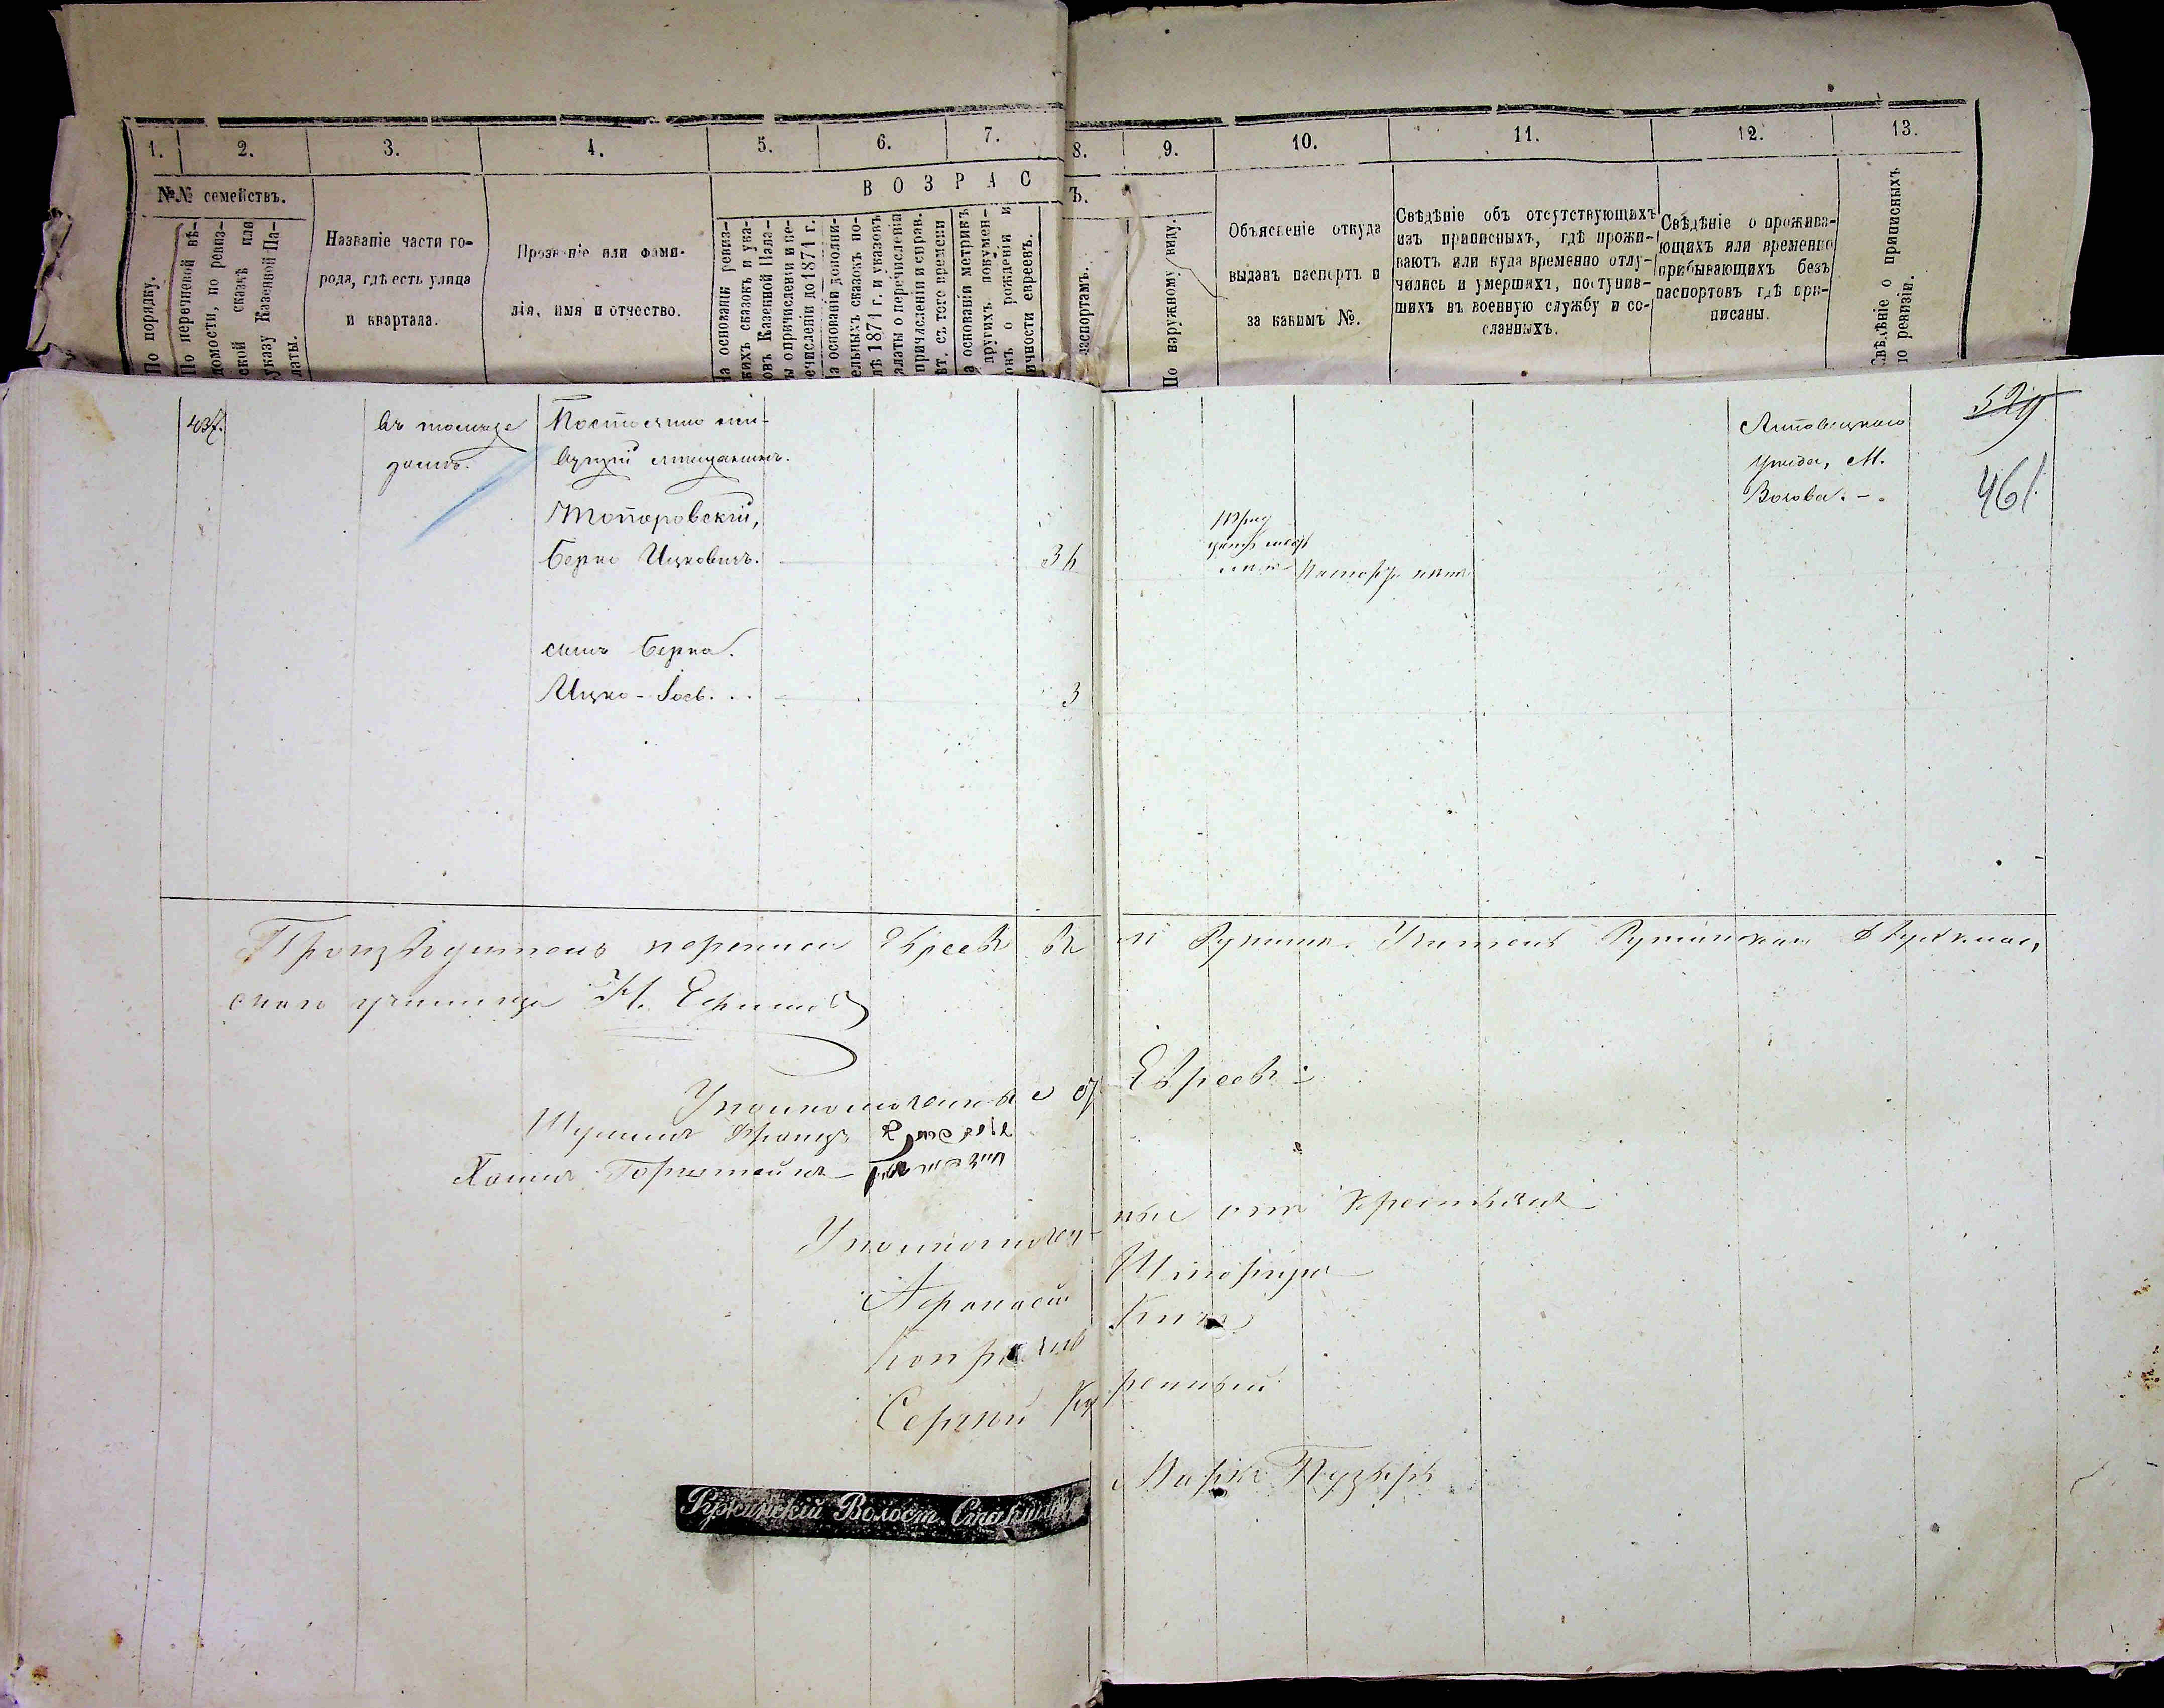 1. 2. 3. 4. 5. 6. 7. 8. 9. 10. 11. 12. 13.
№№ семействъ.
По порядку.
По перечневой вѣ-
домости, по ревиз-
ской сказкѣ или
указу Казенной Па-
латы.
Названіе части го-
рода, гдѣ есть улица
и квартала.
Прозваніе или фами-
лія, имя и отчество.
ВОЗРАС
Ъ.
На основаніи ревиз-
скихъ сказокъ и ука-
зовъ Казенной Пала-
ты о причисленіи и пе-
речисленіи до 1871 г.
На основаніи дополни-
тельныхъ сказокъ по-
слѣ 1871 г. и указовъ
палаты о перечисленіи
причисленіи и справ.
лѣт. съ того времени
На основаніи метрикъ
другихъ докумен-
товъ о рожденіи и
личности евреевъ.
паспортамъ.
По наружному виду.
Объясненіе откуда
выданъ паспортъ и
за какимъ №.
Свѣдѣніе объ отсутствующихъ
изъ приписныхъ, гдѣ прожи-
ваютъ или куда временно отлу-
чились и умершихъ, поступив-
шихъ въ военную службу и со-
сланныхъ.
Свѣдѣніе о прожива-
ющихъ или временно
прибывающихъ безъ
паспортовъ гдѣ при-
писаны.
Свѣдѣніе о приписныхъ
по ревизіи.
437.
въ томъ же
домѣ.
Постоянно жи-
вущій мѣщанинъ.
Топоровскій,
Берко Ицковичъ.
36
сынъ Берка.
Ицко-Іос. . .
3
Липовецкаго
Уѣзда, М.
Вогова. -.
529
461.
Производитель переписи Евреевъ въ м. Ружинѣ. Учитель Ружинскаго двухклас,
снаго училища Н. Ефимов
Уполномоченные отъ Евреевъ:
Шулимъ
Хаимъ Горнштейнъ
Уполномоченные отъ крестьянъ
Афанасій
Кондратъ
Сергѣй
Марко Пузырь
Ружинскій Волост. Старшина